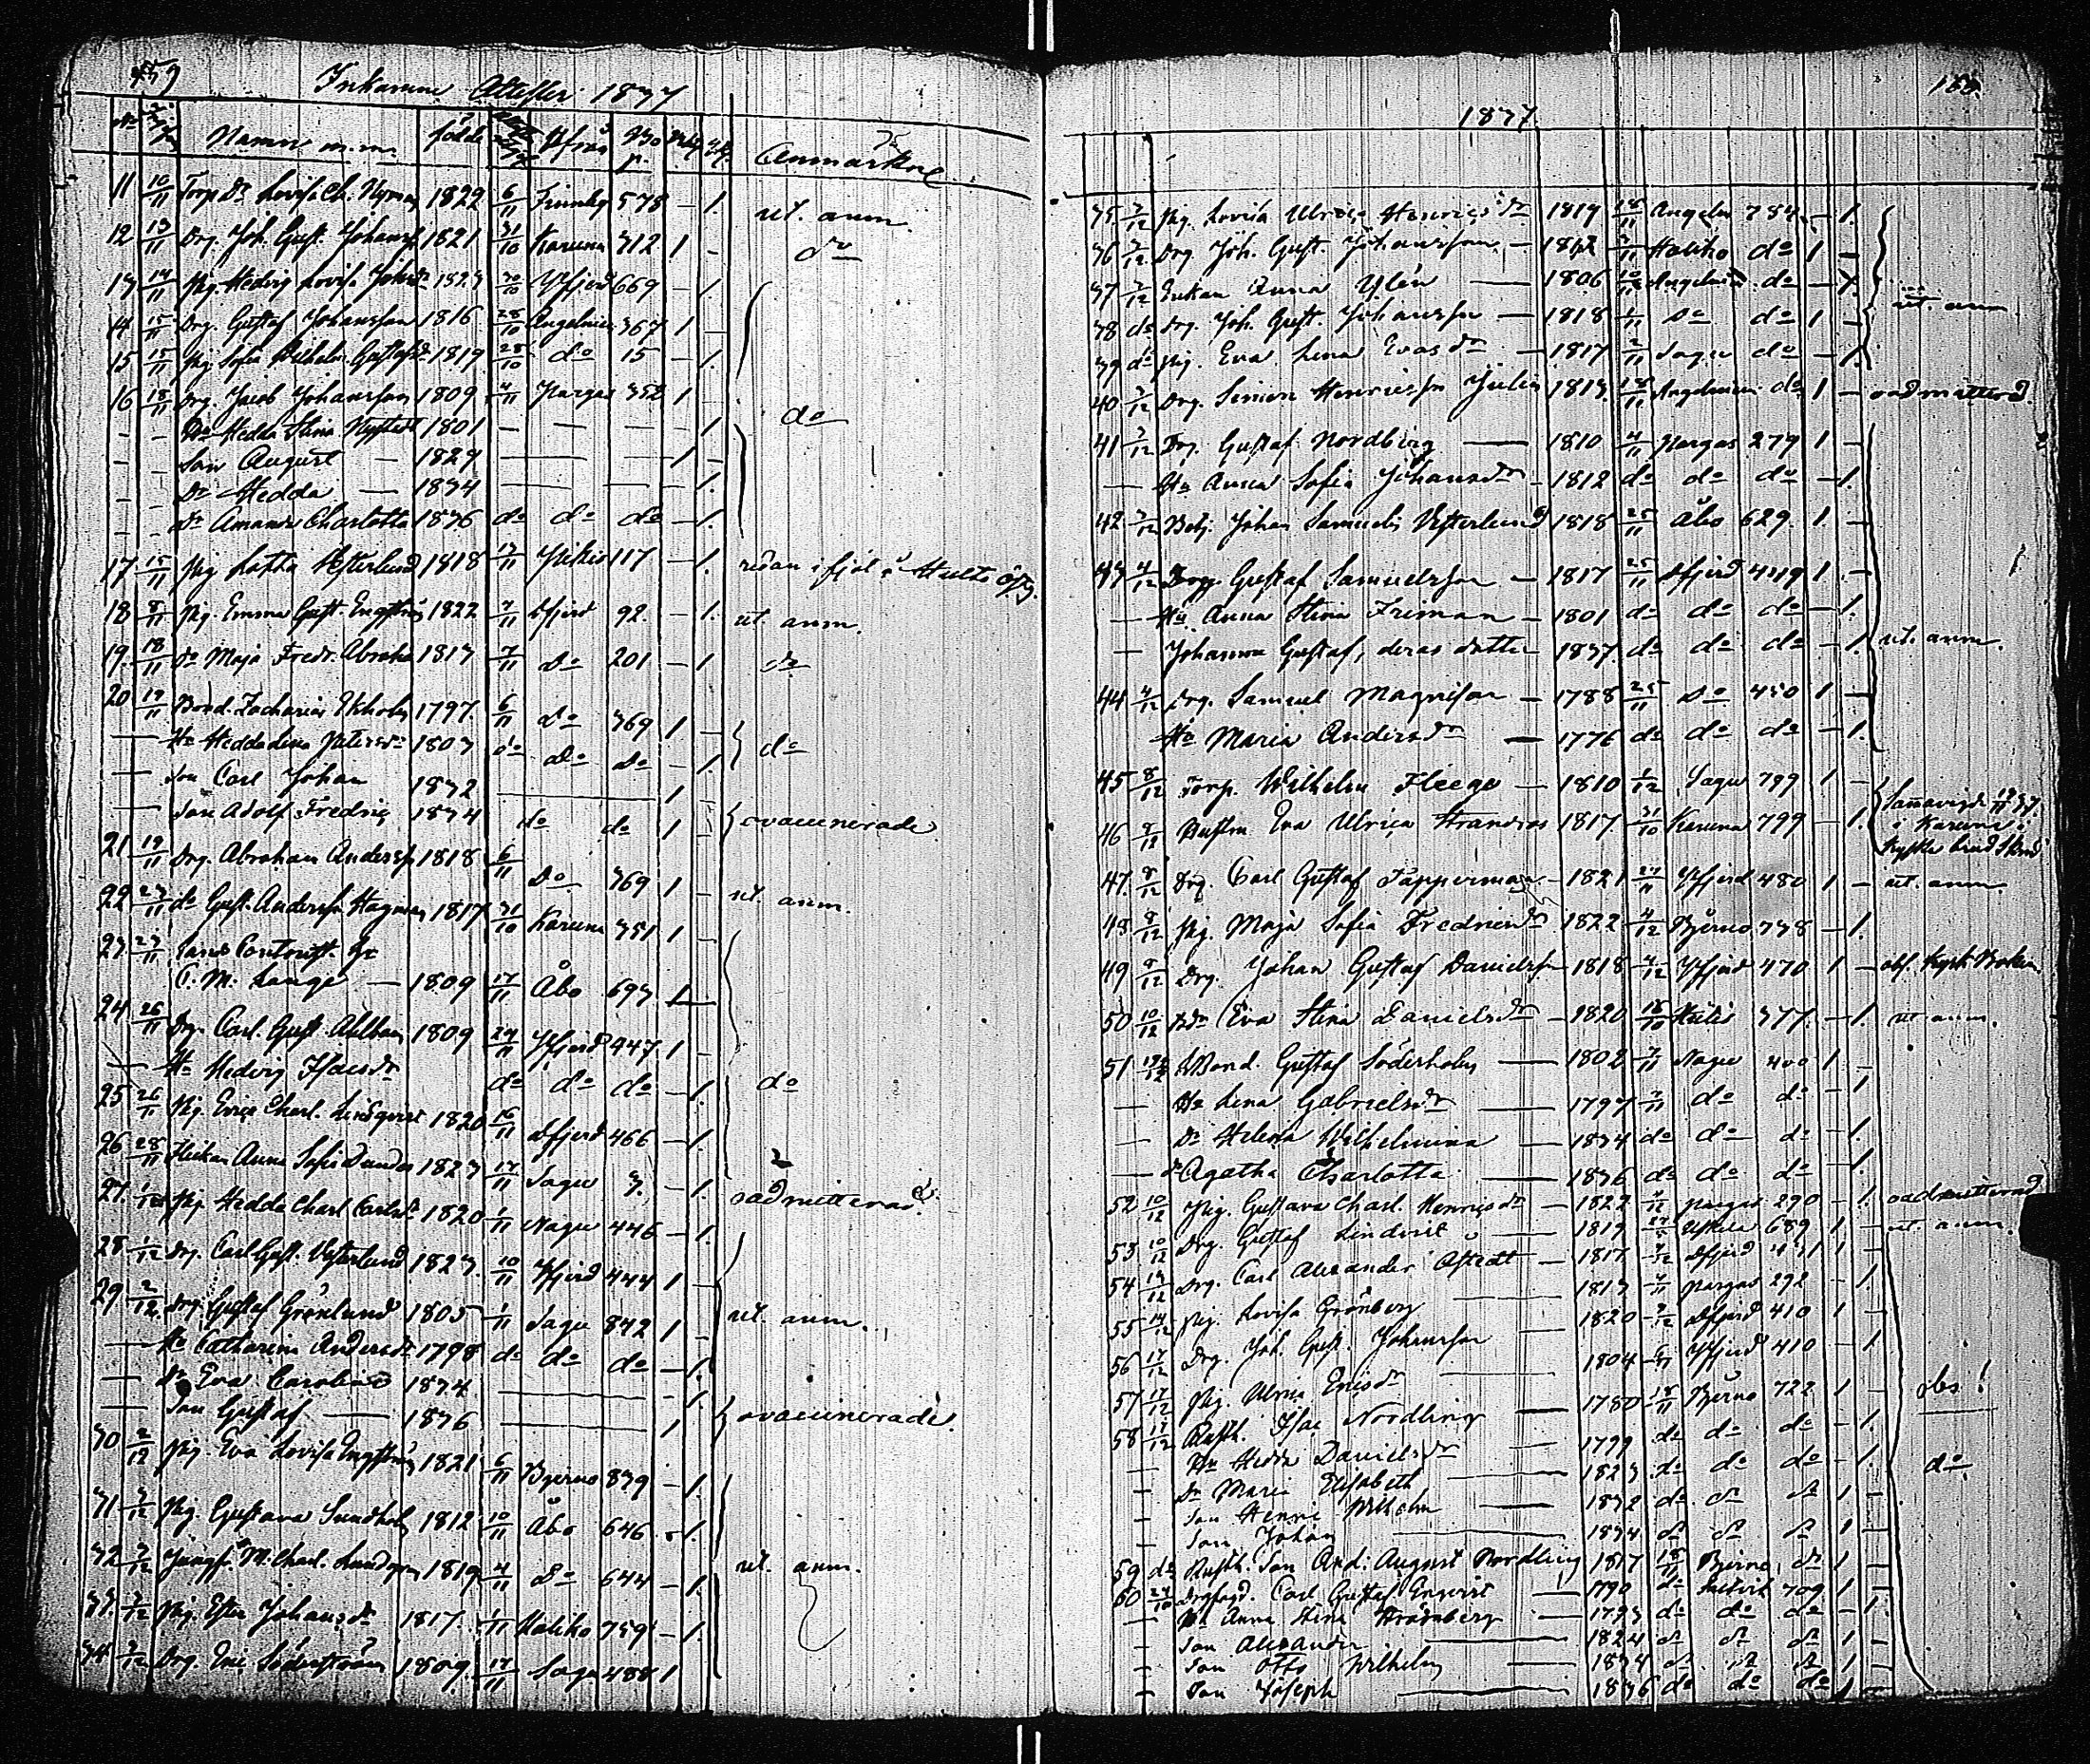 459
Inkomne Attester 1837
No Namn m.m. född ifrån Bo p. Anmärkn
11 10/11 Torp Dr Lovisa Ch. Nyman 1822 6/11 Finnby 578 - 1. ut. anm.
12 13/11 Drg. Joh. Gust. Johanss 1821 31/10 Karuna 312 1 - do
13 14/11 Pig. Hedvig Lovisa Johsdr 1823 30/10 Pfjerd 669 - 1.
14 15/11 Drg. Gustaf Johansson 1816 28/10 Angelnie 367 1 -
15 15/11 Pig. Sofia Vilhelm. Gustafsdr 1819 28/10 do 15 - 1.
16 18/11 Drg. Jacob Johansson 1809 4/11 Pargas 352 1 do
- - Hu Hedda Stina Nystedt 1801 - - - - 1.
- - Son August - 1829 1 -
- - Dr Hedda - 1834 - 1.
- - Dr Amanda Charlotta 1836 do do do - 1.
17 15/11 Pig Lotta Vesterlund 1818 13/11 Pikis 117 - 1. redan i fjol
18 8/11 Pig. Emma Gust. Engström 1822 7/11 Pfjerd 92. - 1. ut. anm.
19. 18/11 do Maja Fredr. Abraha 1813 7/11 Do 201 - 1 do
20 19/11 Bond. Zacharias Ekholm 1797. 6/11 Do 369 1 -
— Hu Hedda Lena Petersdr 1803 do Do Do - 1. do
— Son Carl Johan 1832 1
— Son Adolf Fredric 1834 do do 1 ovaccinerade
21 19/11 Drg. Abraham Anderss 1818 6/11 Do 369 1 -
22 23/11 do Gust. Anderss Hagman 1817 31/10 Karuna 351 1 ut. anm.
23. 23/11 Lands Contorist Hr
C. M. Lange — 1809 17/11 Åbo 693 1 -
24 26/11 Drg. Carl Gust. Ahlbom 1809 24/11 Pfjerd 447 1 -
— Hu Hedvig Isacsdr do do do - 1. do
25 26/11 Pig. Erica Charl. Lindqvist 1820 16/11 Pfjerd 466 - 1.
26 28/11 Flickan Anna Sofia 1823 17/11 Sagu 3. - 1.
27. 1/12 Pig. Hedda Charl Carlsdr 1820 1/11 Nagu 446 - 1. oadmitterad
28 1/12 Drg. Carl Gust. Vesterlund 1823. 10/11 Pfjerd 444 1 -
29 2/12 Drg Gustaf Grönlund 1805 1/11 Sagu 842 1 ut. anm.
— Hu Catharina Andersdr 1798 do do do - 1.
— Dr Eva Carolina 1834 - 1.
— Son Gustaf — 1836 1 ovaccinerade.
30 2/12 Pig. Eva Lovisa Engström 1821 6/11 Bjerno 839 - 1.
31 3/12 Pig. Gustava Sundholm 1812 10/11 Åbo 646 - 1.
32 3/12 Jungf. M. Charl. Lundgren 1819 4/11 Do 644 - 1. ut. anm.
33. 3/12 Pig. Ester Johansdr 1817. 1/11 Haliko 759 - 1.
34 3/12 Drg. Eric Söderström 1809. 17/11 Sagu 488 1
160.
1837
35 3/12 Pig. Lovisa Ulrica Henricsdr 1819 18/11 Angeln 784. - 1.
36 3/12 Drg. Joh. Gust. Johansson — 1812 3/11 Haliko do 1 -
37 3/12 Enkan Anna Ylén — 1806 10/11 Angelnie do - 1. ut. anm
38 do Drg. Joh. Gust. Johansson — 1818 1/11 Do do 1 -
39 do Pig. Eva Lena Evasdr — 1817 2/11 Sagu do - 1.
40 3/12 Drg. Simon Henricsson Julin 1813. 18/11 Angelniemi do 1 - oadmitterad.
41 3/12 Drg. Gustaf Nordberg — 1810 4/11 Pargas 279 1 -
— Hu Anna Sofia Johansdr - 1812 do do do - 1.
42 3/12 Betj. Johan Samuels Vesterlund 1818 25/11 Åbo 629. 1. -
43 4/12 Drg Gustaf Samuelsson — 1817 25/11 Pfjerd 4319 1. -
— Hu. Anna Stina Friman — 1801 do do do - 1.
— Johanna Gustaf, deras dotter 1837. do do do - 1. ut. anm.
44 4/12 Drg. Samuel Magnison — 1788 25/11 Do 450 1 -
Hu Maria Andersdr — 1776 do do do - 1.
45 8/12 Torp. Wilhelm Fleege — 1810 1/12 Sagu 799 1 -
46 8/12 Eva Ulrica Strandros 1817. 31/10 Karuna 799 - 1. i Karuna
47. 8/12 Drg. Carl Gustaf Tapperman 1821 27/11 Pfjerd 480 1 - ut. anm
48 8/12 Pig. Maja Sofia Fredriksdr 1822 4/12 Bjerno 738 - 1.
49 9/12 Drg. Johan Gustaf Danielsson 1818 4/12 Pfjerd 470 1 - obs. Kyrk. Boken.
50 10/12 Eva Stina Danielsdr — 1820 16/10 377. - 1. ut anm.
51 Bond. Gustaf Söderholm — 1802 3/11 Nagu 400 1 -
— Hu Lena Gabrielsdr — 1797 3/11 do do - 1
— Dr Helena Wilhelmina — 1834 do do do - 1.
— dr Agatha Charlotta — 1836 do do do - 1.
52 10/12 Pig. Gustava Charl. Henricsdr — 1822 Pargas 290 - 1. oadmitterad
53 10/12 Drg. Gustaf Lindqvist — 1819 689 1 - ut. anm.
54 14/12 Drg. Carl Alexander Åstedt — 1817. Pfjerd 1 -
55 14/12 Pig. Lovisa Grönberg — 1813 Pargas 292 - 1.
56 17/12 Drg. Joh. Gust. Johansson — 1820 Pfjerd 410 1 -
57 17/12 Pig. Ulrica Ericsdr — 1804 Pfjerd 410 - 1
58 17/12 Rusth. Isac Nordling — 1780 18/11 Bjerno 722 1 - obs!
— Hu Hedda Danielsdr — 1799 do do do - 1.
— Dr Maria Elisabeth — 1823. do do do - 1 do
— Son Henric Wilhelm — 1832 do do do 1.
— Son Johan — 1834 do do do 1 -
59 do Rusth. Son And: August Nordling 1817 18/11 Bjerno do 1 -
60 Carl Gustaf Enqvist — 1790 do 709 1 -
— Hu Anna Stina Strömberg — 1793 do do do - 1.
— Son Alexander — 1824 do do do 1 -
— Son Otto Wilhelm — 1834 do do do 1 -
— Son Joseph — 1836 do do do 1 -